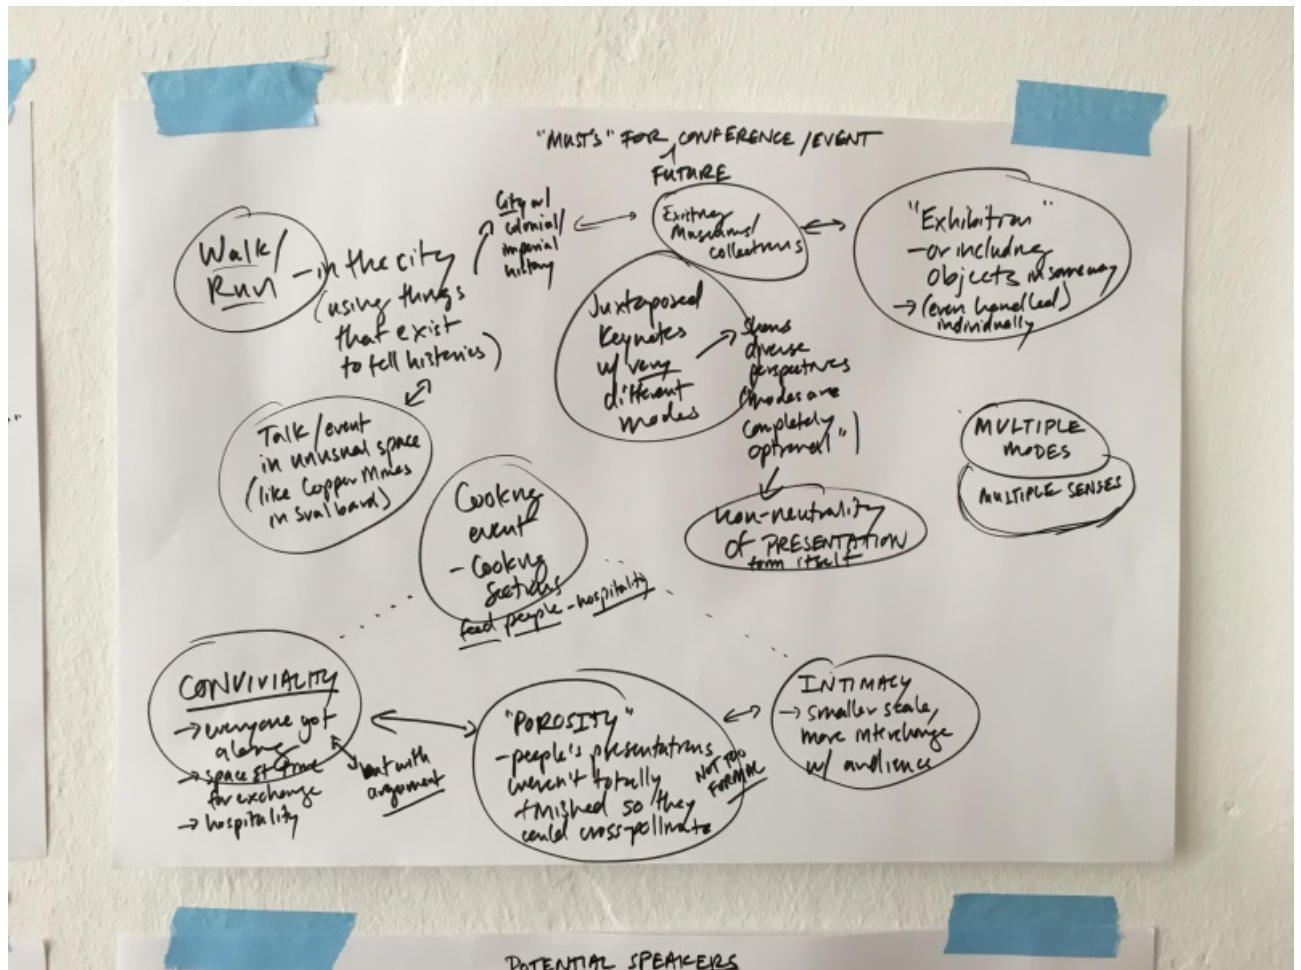 "MUSTS" FOR CONFERENCE/EVENT
FUTURE
Walk/
Run
- in the city
(using things
that exist
to tell histories)
City w/
colonial/
imperial
history
Existing
Museums/
collections
"Exhibition"
- or including
objects in some way
→ (even handled)
individually
Juxtaposed
Keynotes
w/ very
different
modes
shows
diverse
perspectives
("modes are
completely
optional")
non-neutrality
of PRESENTATION
form itself
MULTIPLE
MODES
MULTIPLE SENSES
Talk/event
in unusual space
(like Copper Mines
in Svalbard)
Cooking
event
- Cooking
Sections
feed people - hospitality
CONVIVIALITY
→ everyone got
along
→ space & time
for exchange
→ hospitality
but with
argument
"POROSITY"
- people's presentations
weren't totally
finished so they
could cross-pollinate
NOT TOO
FORMAL
INTIMACY
→ smaller scale,
more interchange
w/ audience
POTENTIAL SPEAKERS